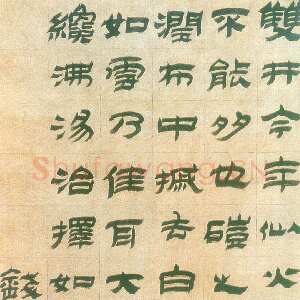 雙井今年似火
不能多也磑之
潤布中摵去白
如雪乃佳耳大
纔沸湯治擇如
錢
Shufawang.CN